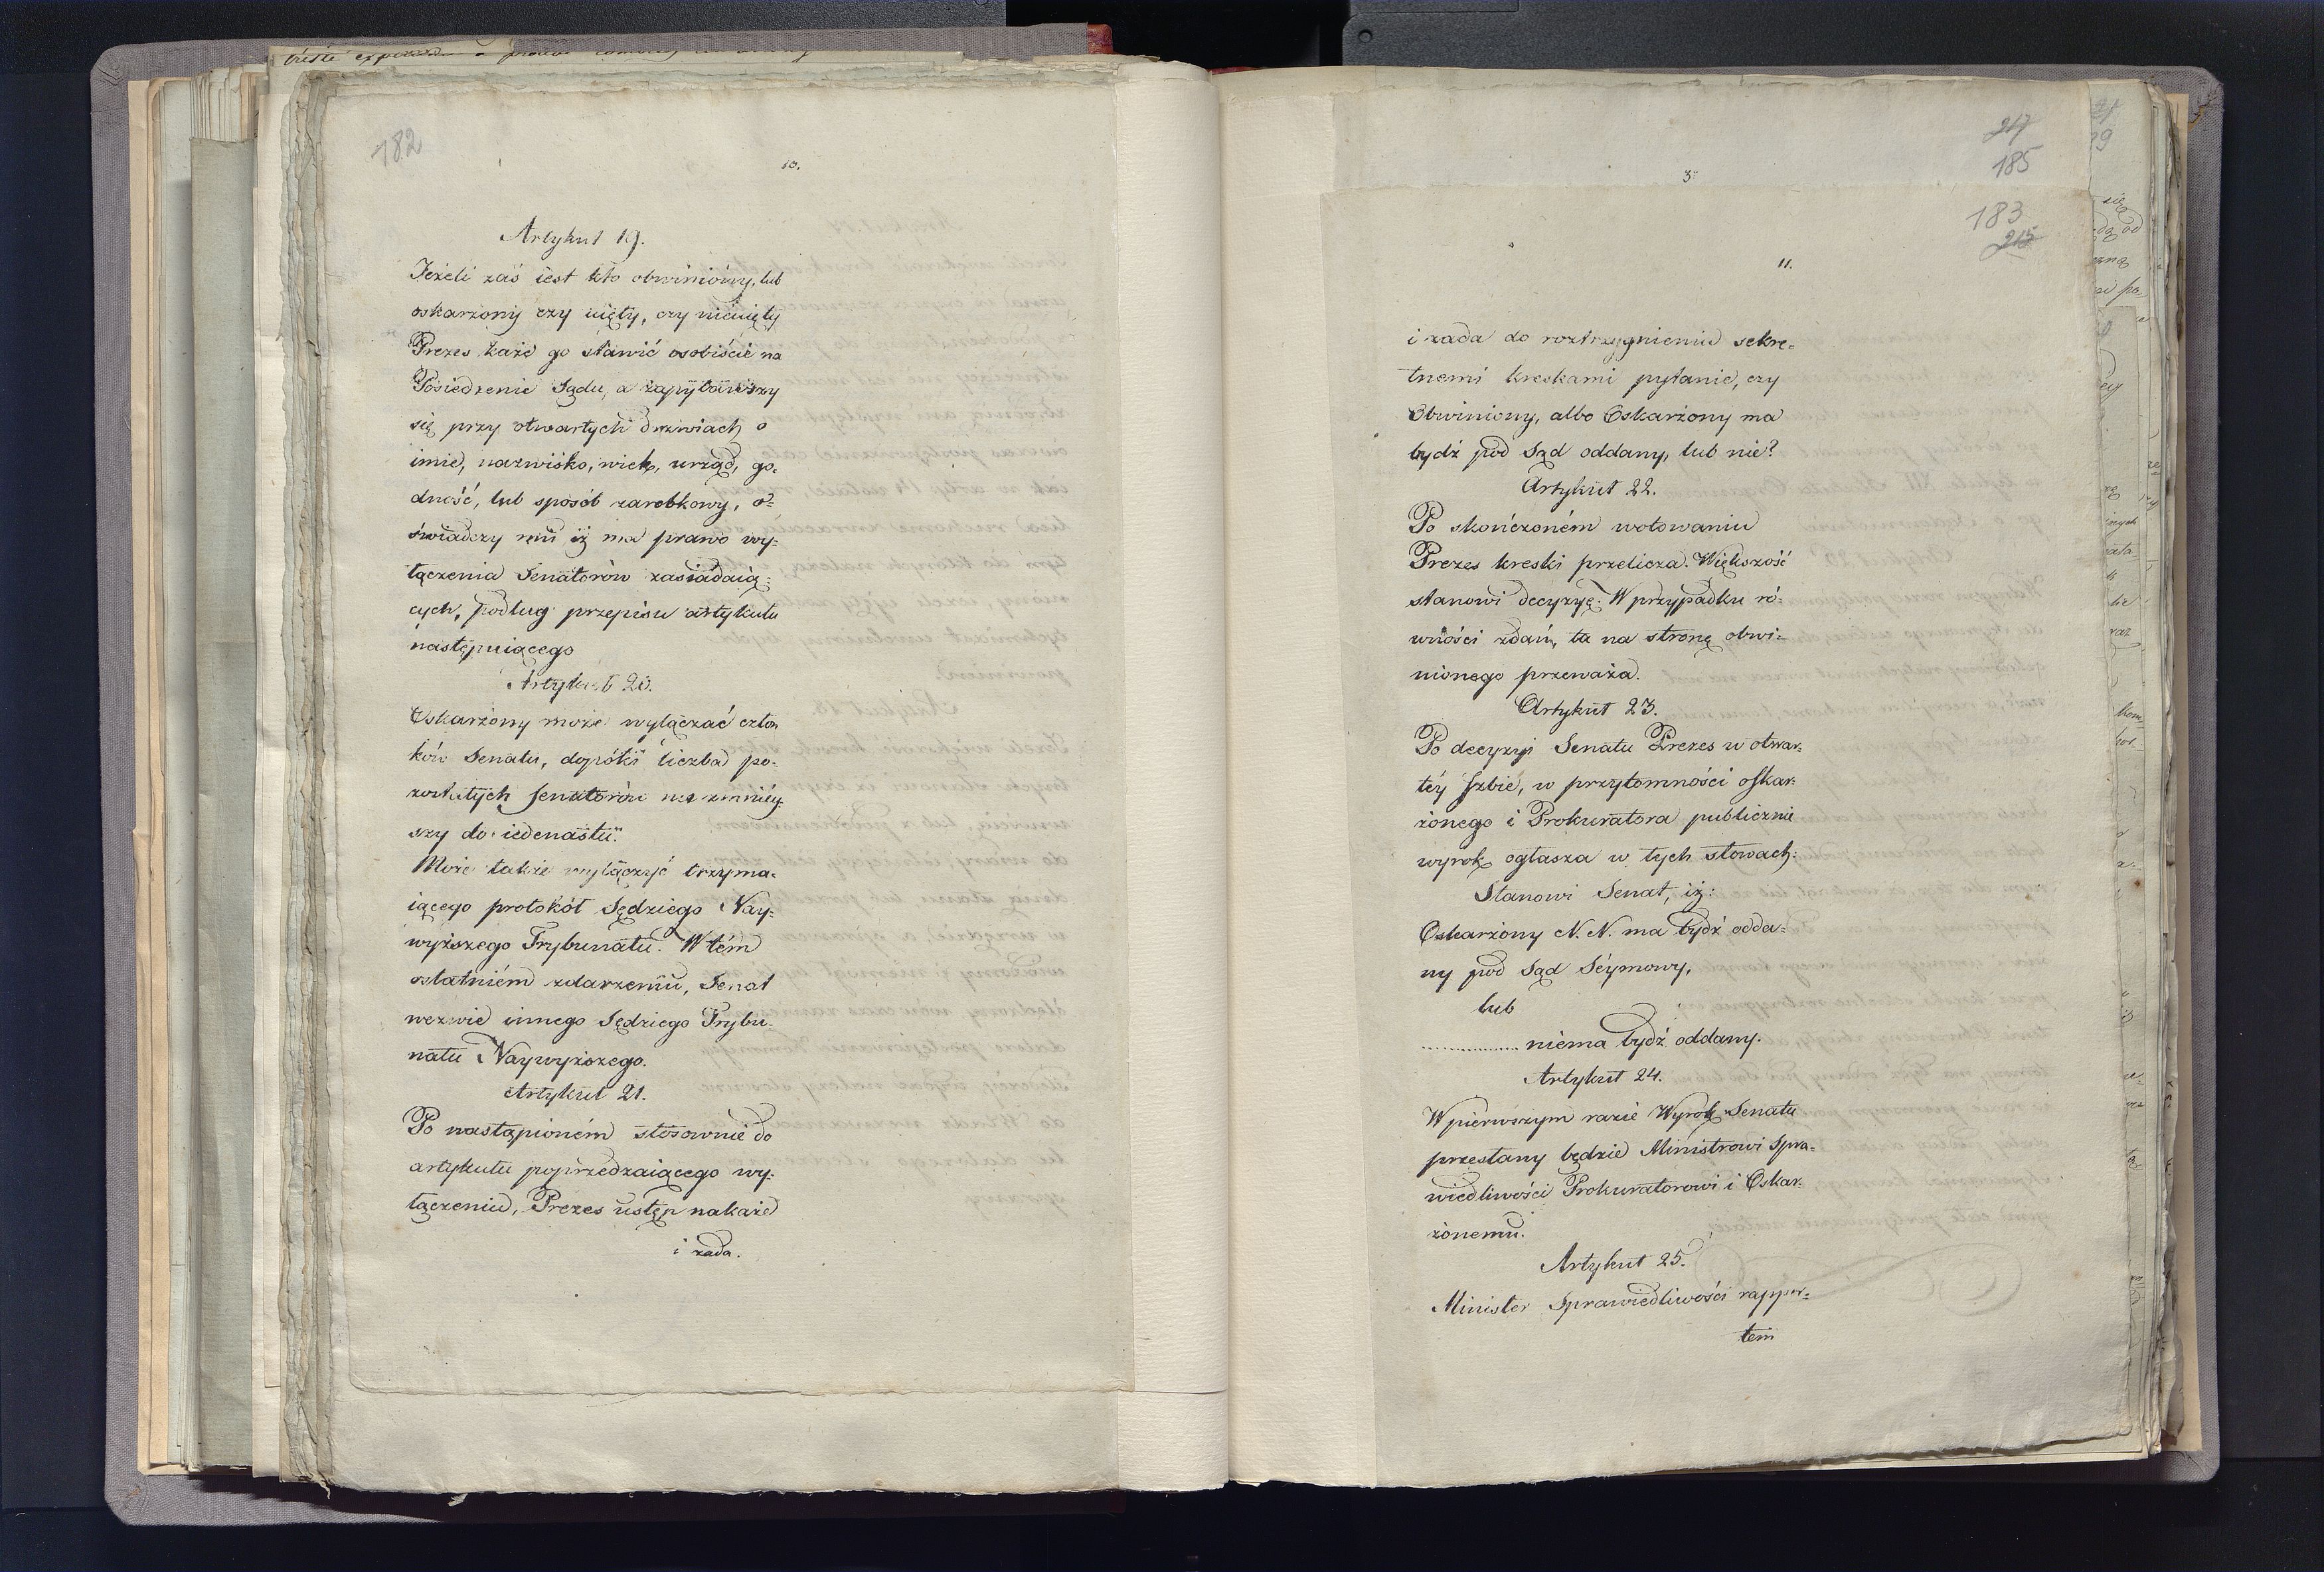 182
10.
Artykuł 19.
Jeżeli zaś iest kto obwiniony, lub
oskarżony czy uięty, czy nieuięty
Prezes każe go stawić osobiście na
Posiedzenie Sądu, a zapytawszy
się przy otwartych drzwiach o
imie, nazwisko, wiek, urząd, go-
dność, lub sposób zarobkowy, o-
świadczy mu iż ma prawo wy-
łączenia Senatorów zasiadaią-
cych, podług przepisu artykułu
następuiącego
Artykuł 20.
Oskarżony może wyłączać człon
ków Senatu, dopóki liczba po-
zostałych Senatorów nie zmniey-
szy do iedenastu.
Może także wyłączyć trzyma-
iącego protokół Sędziego Nay-
wyższego Trybunału. W tém
ostatniém zdarzeniu, Senat
wezwie innego Sędziego Trybu-
nału Naywyższego.
Artykuł 21.
Po nastąpioném stosownie do
artykułu poprzedzaiącego wy-
łączeniu, Prezes ustęp nakaże
i zada.
217
185
3
183
215
11.
i zada do roztrzygnienia sekre-
tnemi kreskami pytanie, czy
Obwiniony, albo Oskarżony ma
bydź pod Sąd oddany, lub nie?
Artykuł 22.
Po skończoném wotowaniu
Prezes kreski przelicza. Większość
stanowi decyzyę. W przypadku ró-
wności zdań, ta na stronę obwi-
nionego przeważa.
Artykuł 23.
Po decyzyi Senatu Prezes w otwar-
téy Izbie, w przytomności oskar-
żonego i Prokuratora publicznie
wyrok ogłasza w tych słowach:
Stanowi Senat, iż:
Oskarżony N. N. ma bydź odda-
ny pod Sąd Séymowy,
lub
................ niema bydź oddany.
Artykuł 24.
W pierwszym razie Wyrok Senatu
przesłany będzie Ministrowi Spra-
wiedliwości Prokuratorowi i Oskar-
żonemu.
Artykuł 25.
Minister Sprawiedliwości rappor-
tem